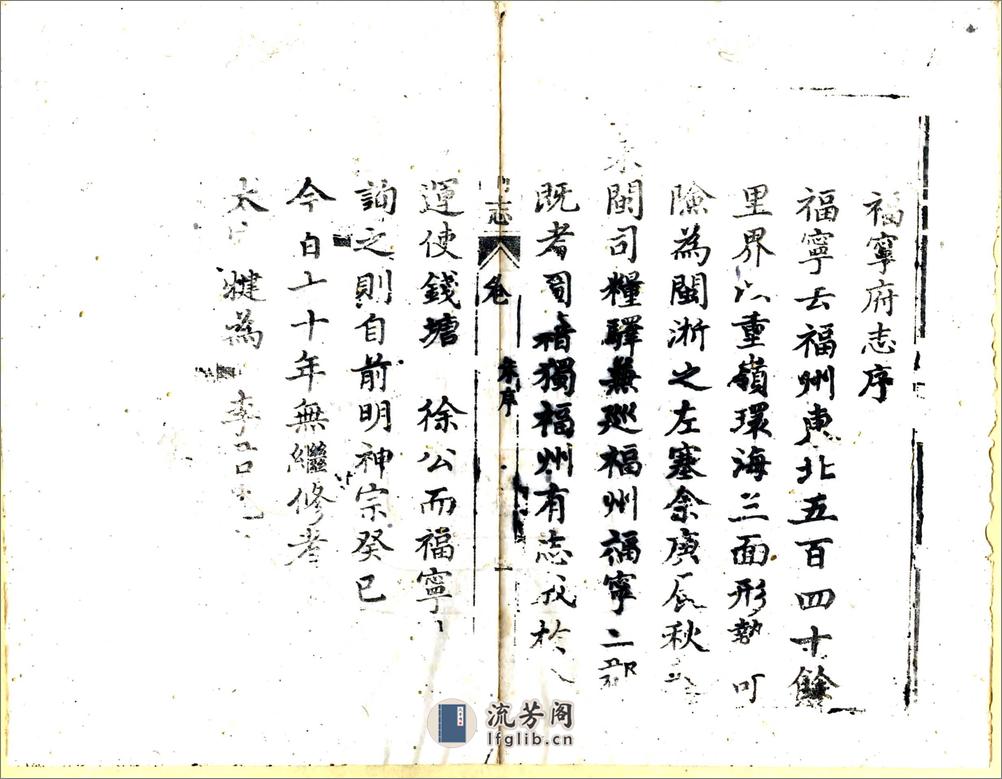 福寧府志序
福寧去福州東北五百四十餘
里界以重嶺環海三面形勢可
險為閩浙之左塞余庚辰秋
來閩司糧驛兼巡福州福寧二郡
既者獨福州有志成於
志
卷
朱序
一
運使錢塘 徐公而福寧
詢之則自前明神宗癸巳
今百十年無繼修者
太 犍為 李
流芳阁
lfglib.cn